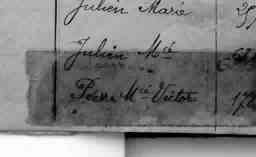 Julien Marie
Julien Mie
Pierre Mie Victor 17